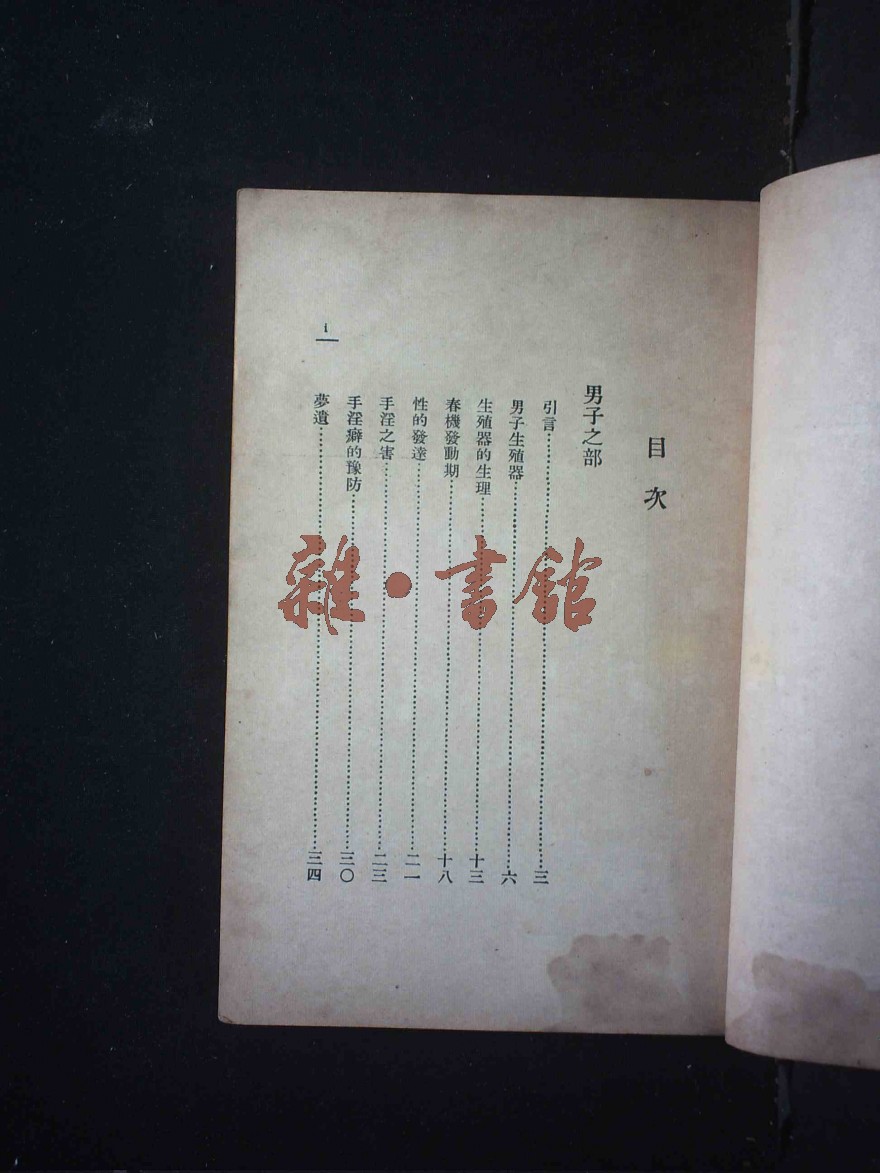 目次
男子之部
引言……………………三
男子生殖器……………………六
生殖器的生理……………………十三
春機發動期……………………十八
性的發達……………………二一
手淫之害……………………二三
手淫癖的豫防……………………三〇
夢遺……………………三四
1
雜·書館